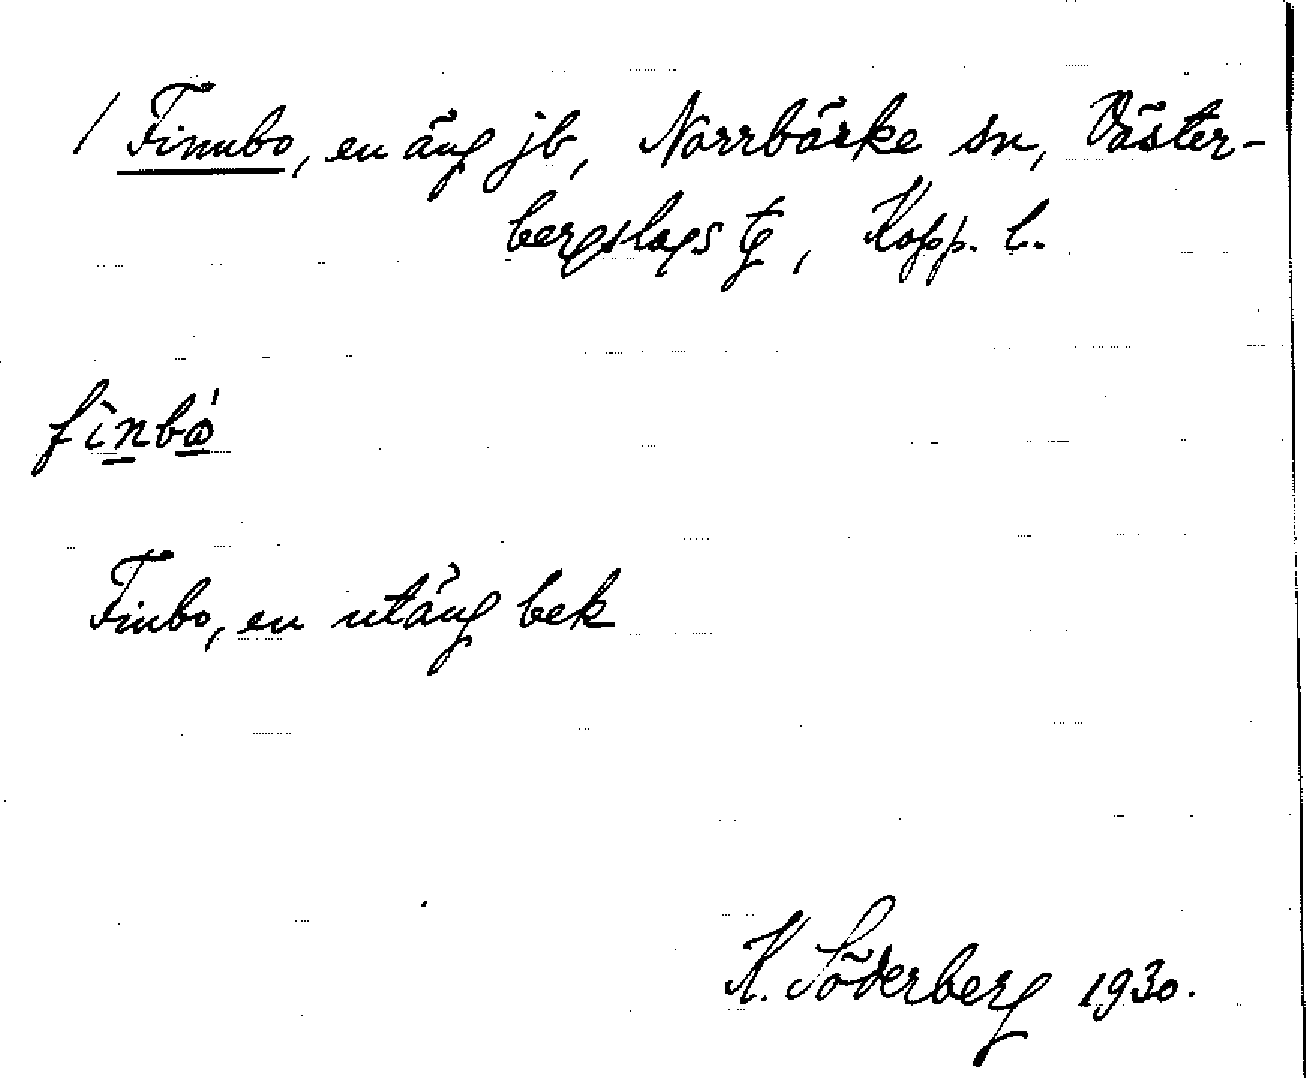 / Finnbo, en äng jb, Norrbärke sn, Väster-
bergslags tg, Kopp. l.
fìnbó
Finbo, en utäng bek
K. Söderberg 1930.